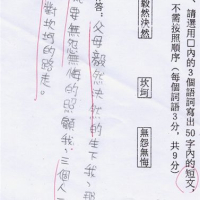 、請選用口內的3個詞語寫出50字內的短文，
不需按照順序（每個詞語3分，共9分）
毅然決然
坎坷
無怨無悔
答：父母毅然決然的生下我，那
要無怨無悔的照顧我，三個人一
對坎坷的路走。